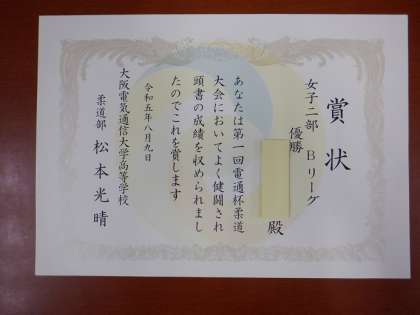 賞状
女子二部 Bリーグ
優勝
殿
あなたは第一回電通杯柔道
大会においてよく健闘され
頭書の成績を収められまし
たのでこれを賞します
令和五年八月九日
大阪電気通信大学高等学校
柔道部 松本光晴